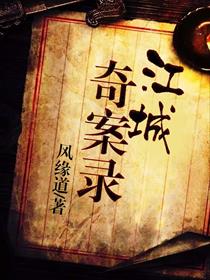 江城
奇案录
风缘道著